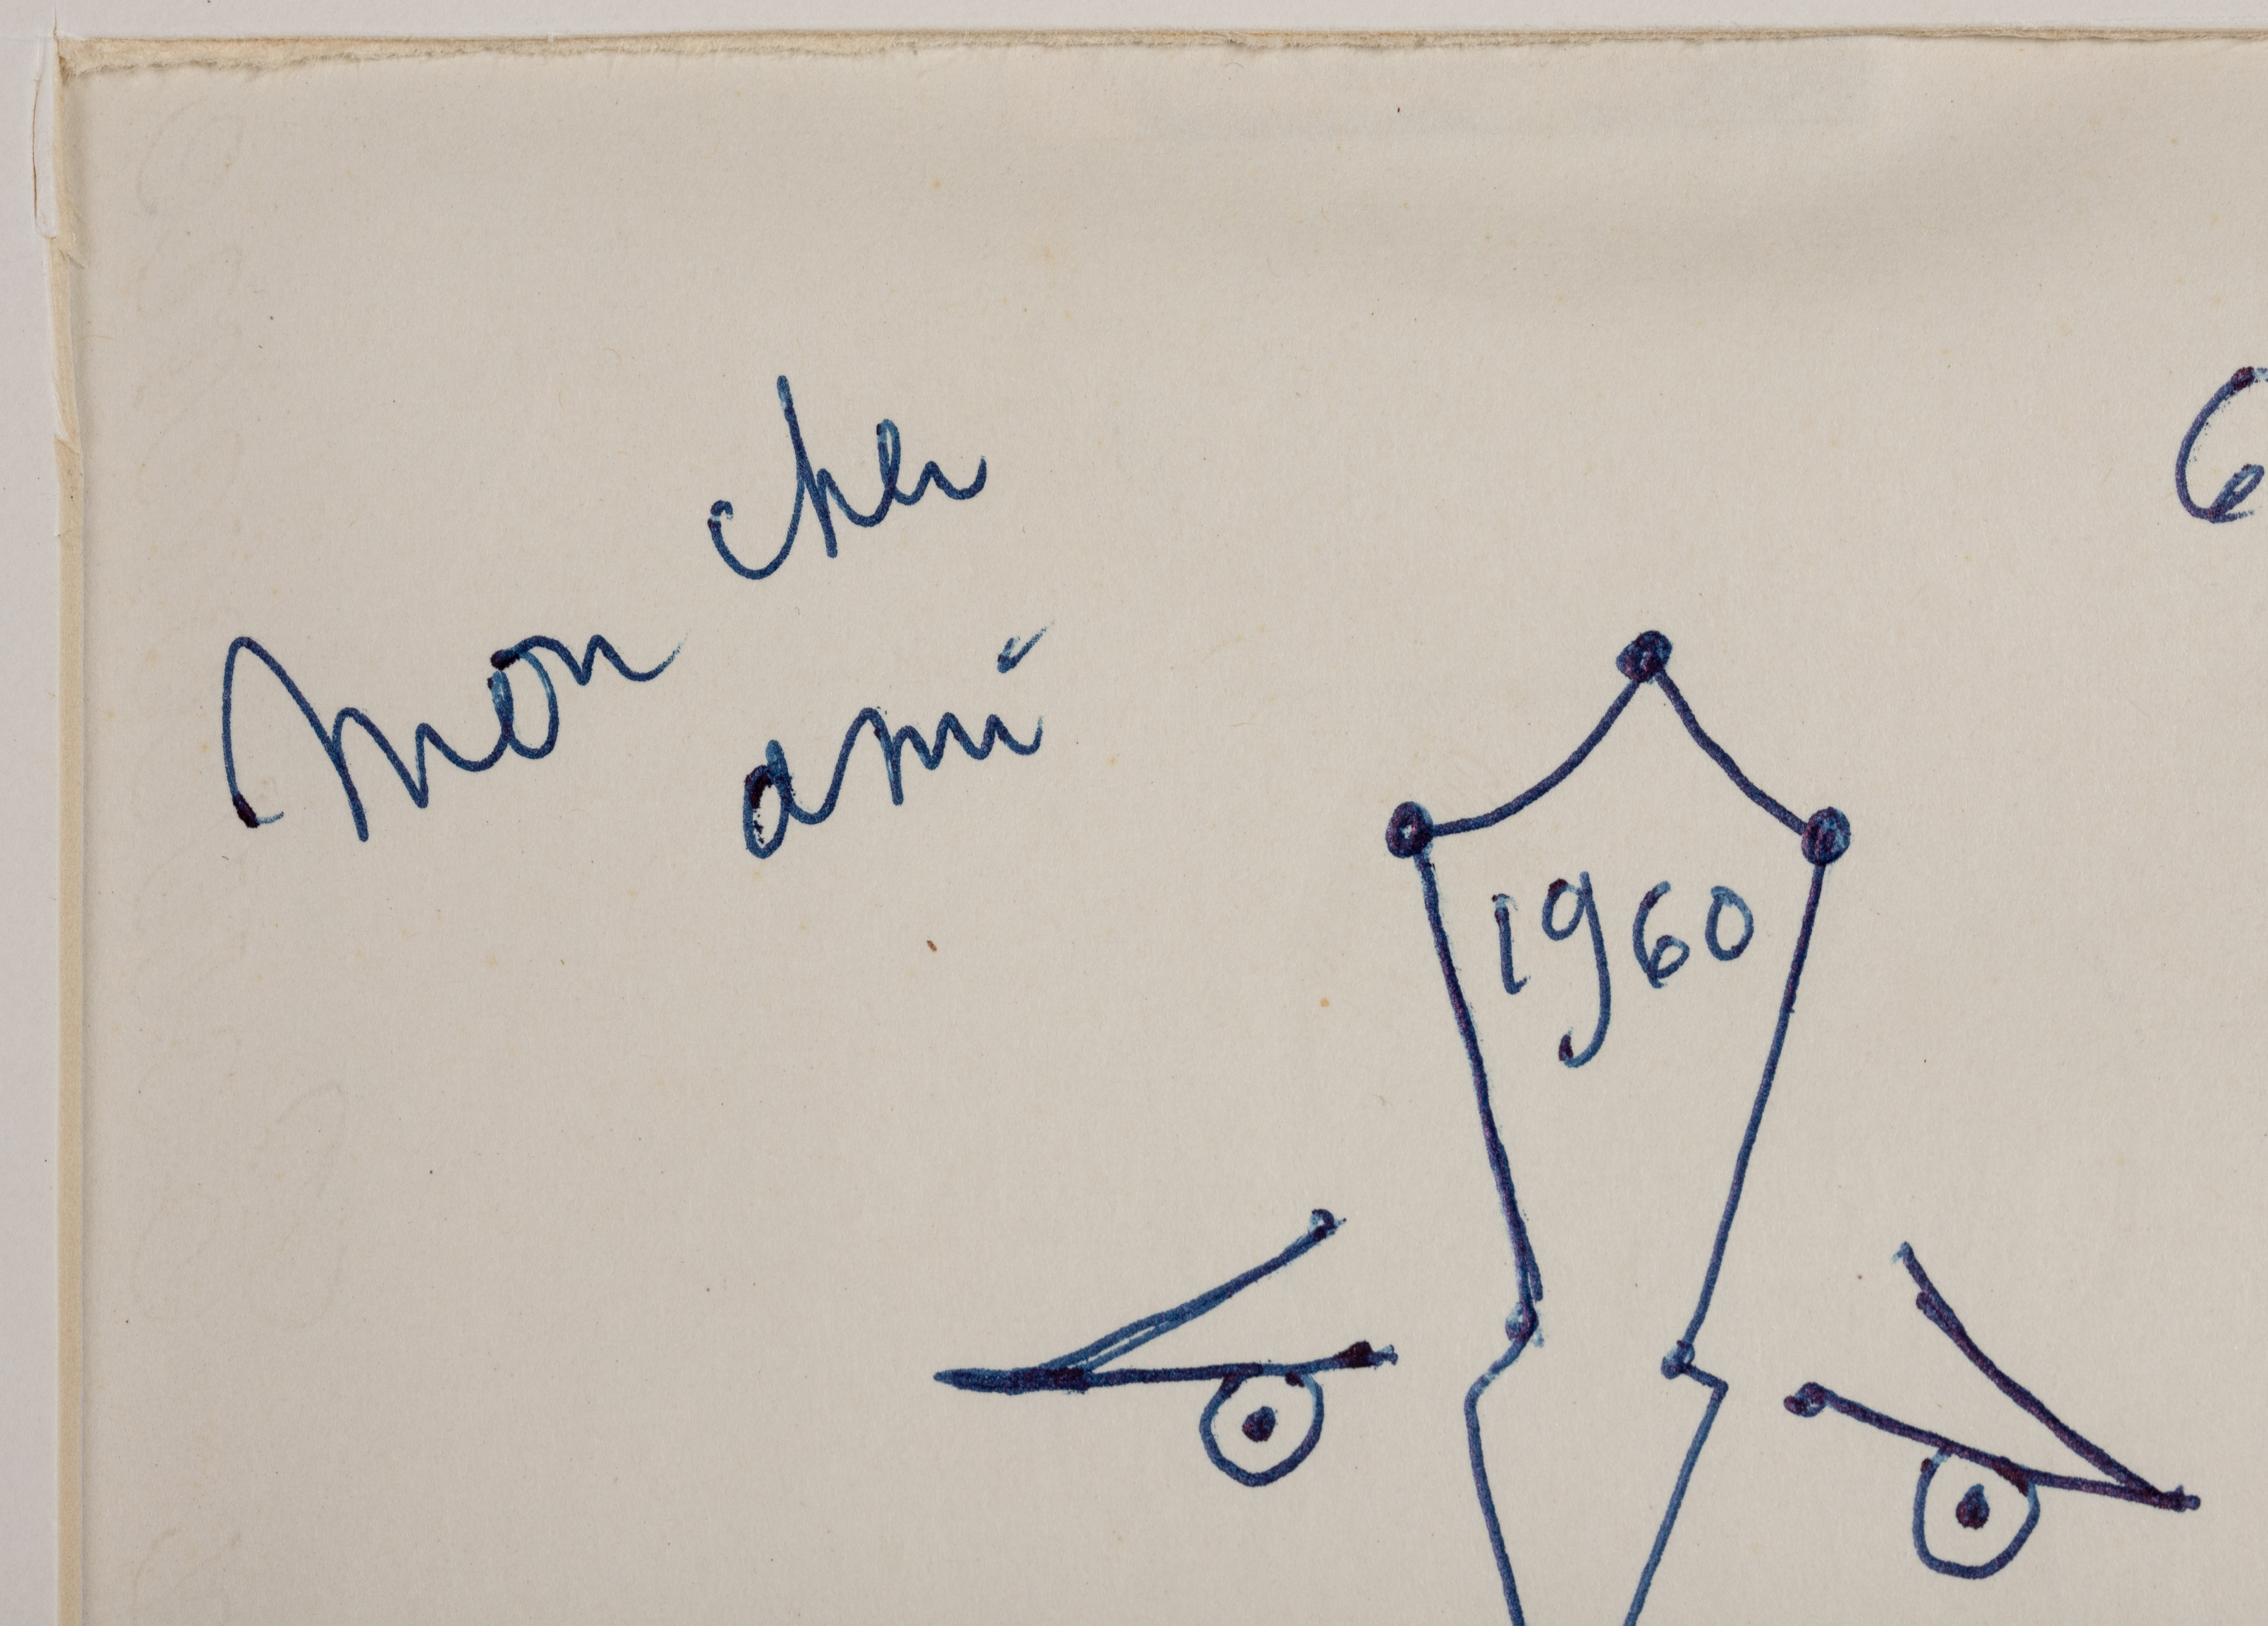 Mon cher
ami
1960